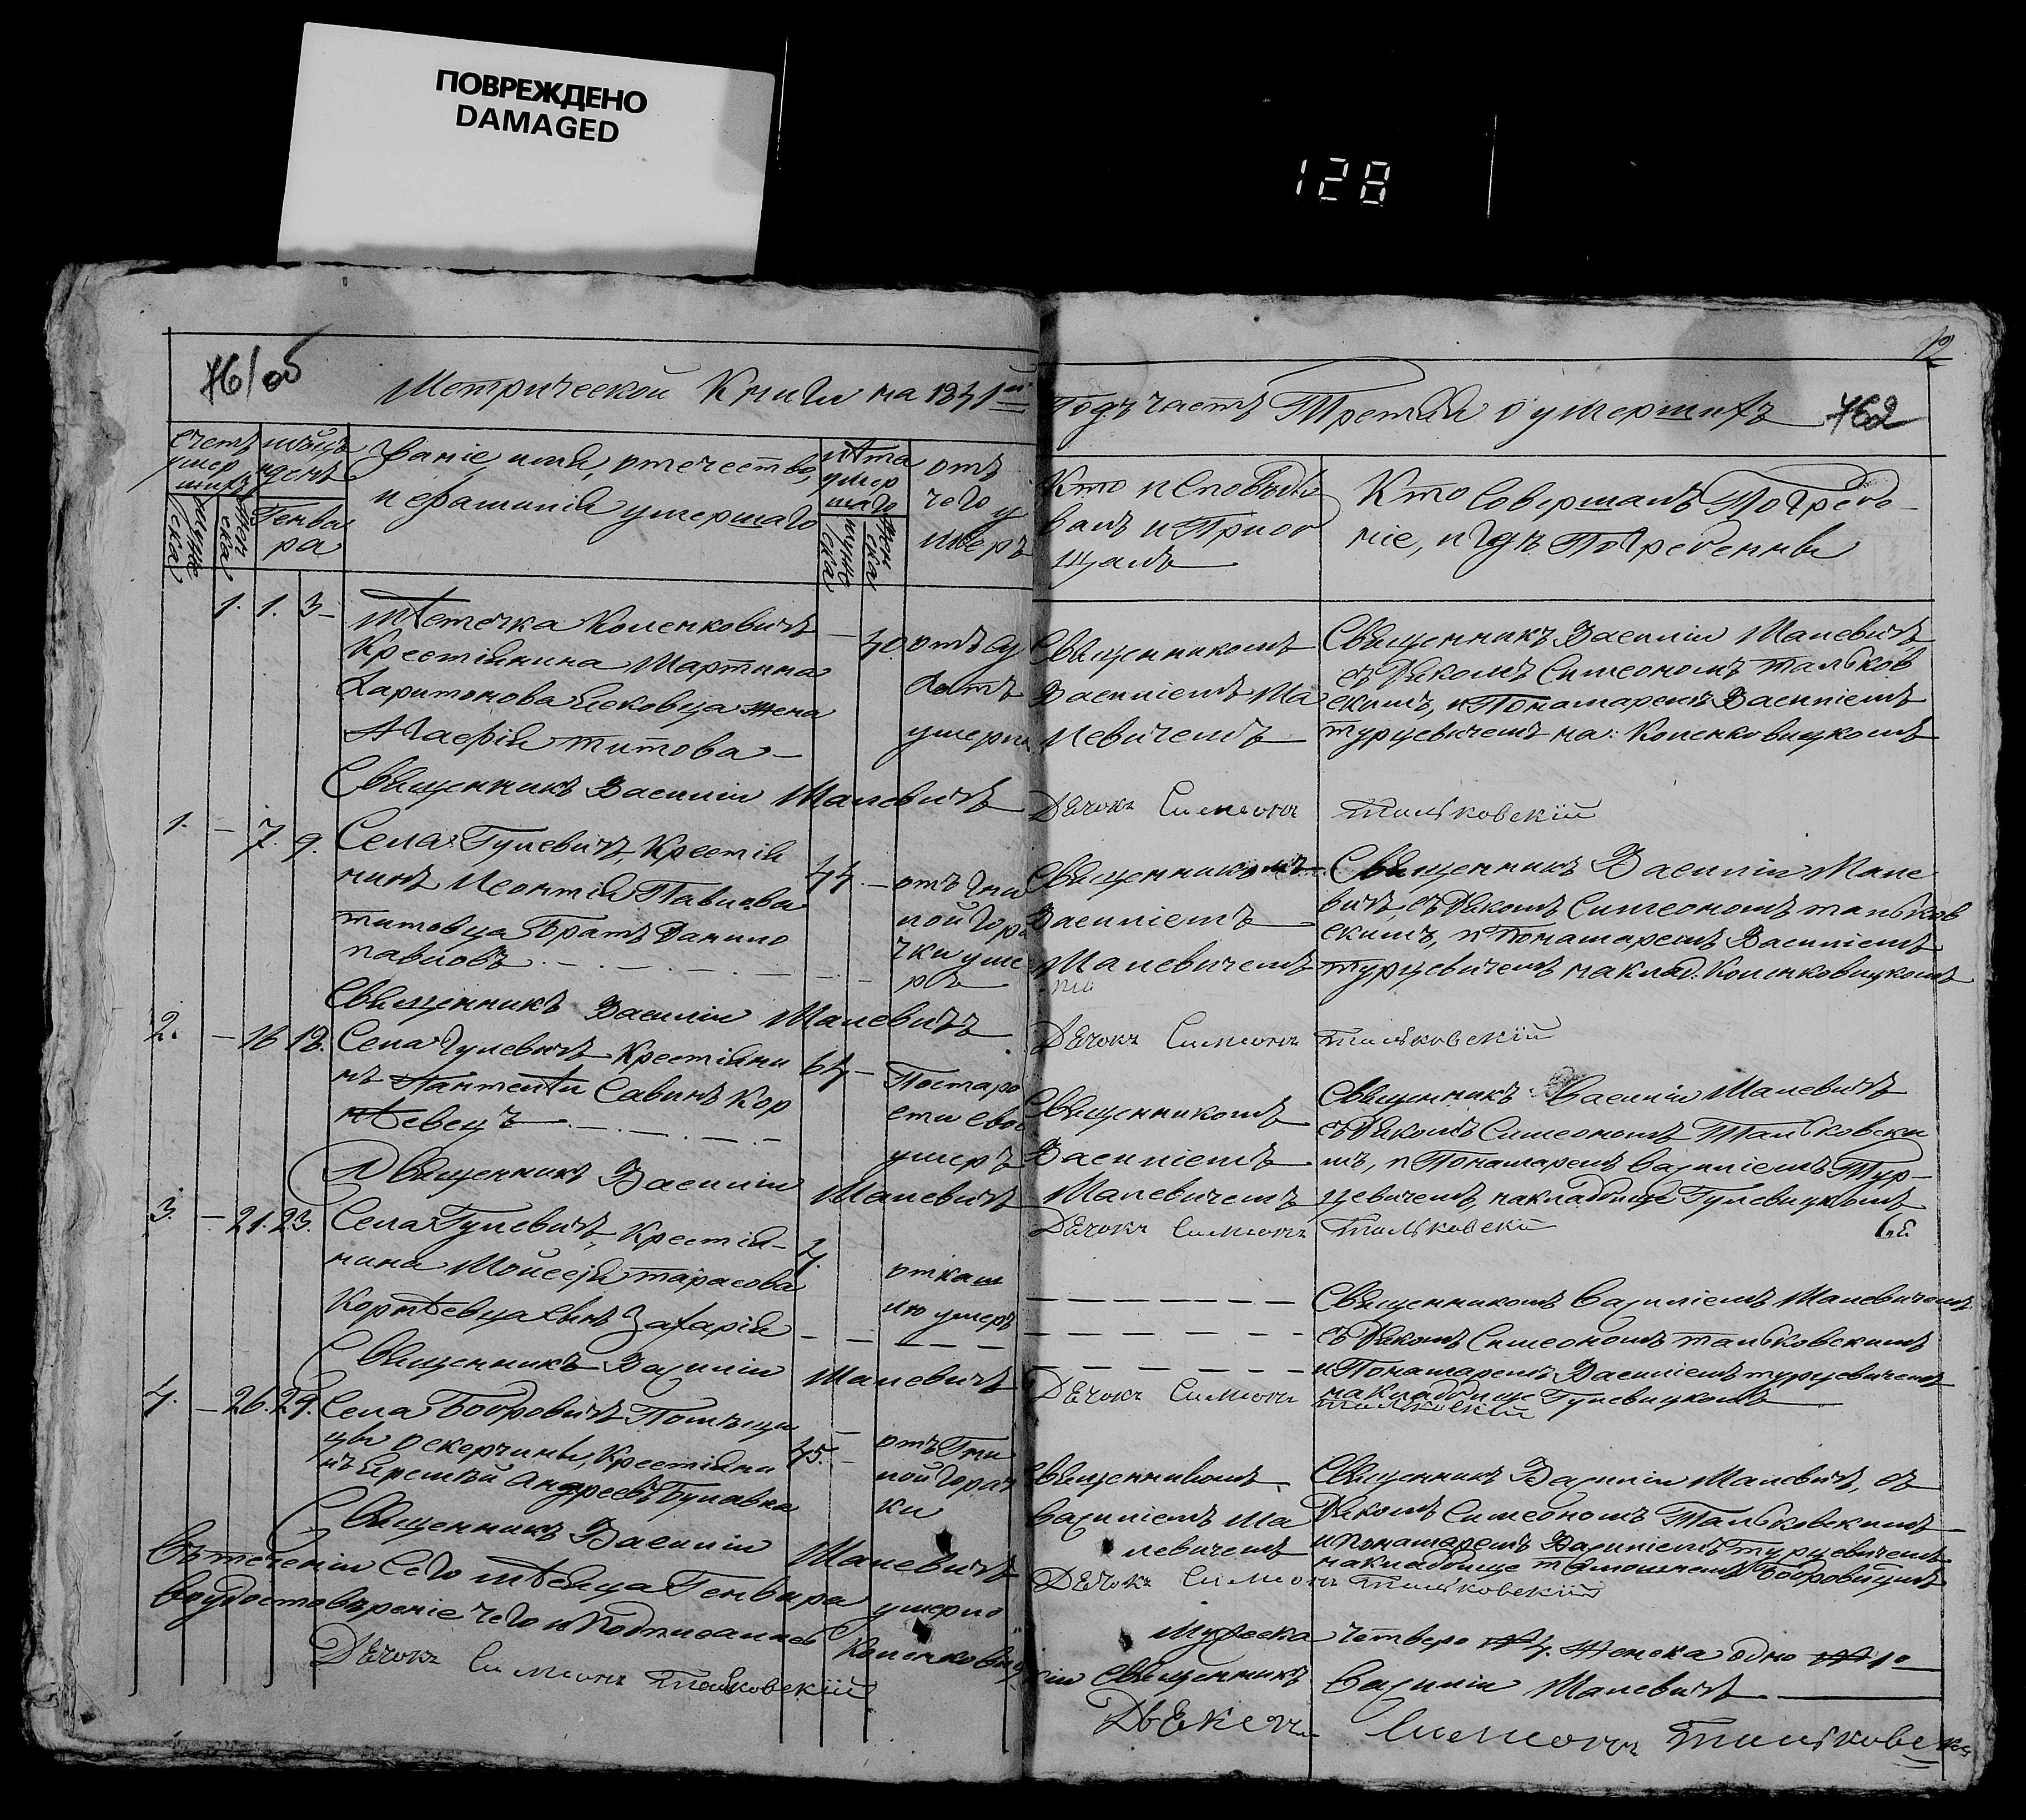 ПОВРЕЖДЕНО
DAMAGED
128
Метрической Книги на
Годъ часть Третїя о умершихъ
762
счетъ
умер
шихъ
мужес
ка
женс
ка
день
Генва
ра
Званіе, имя, отечество,
и фамилія умершаго
лѣта
умер
шаго
мужес
ка
женс
ка
отъ
чего
у
меръ
Кто исповѣды
валъ и Прїоб
щалъ
Кто Совершалъ Погребе
ніе, и гдѣ Погребенны
1. 1. 3
мѣстечка Копенковичъ
Крестіянина Мартина
Харитонова жена
Агафія титова
40.
отъ
умерла
Священникомъ
Василіемъ Ма
левичемъ
Священникъ Василіи Малевичъ
съ Дякомъ Симеономъ тальков
скимъ, и Понамаремъ Василіемъ
турцевичемъ на: Копенковицкомъ
Священникъ Василіи Малевичъ
Дечокъ Симеонъ Тальковскій
1. – 7. 9.
Села Гулевичъ, Крестія
нинъ Леонтія Павлова
титовца Братъ Данило
павловъ
44.
отъ гни
лой горя
чки уме
ръ
Священникомъ
Василіемъ
Малевичемъ
Священникъ Василіи Мале
вичъ, съ Дякомъ Симеономъ тальков
скимъ, и Понамаремъ Василіемъ
турцевичемъ на клад: Копенковицкомъ
Священникъ Василіи Малевичъ
Дечокъ Симеонъ Тальковскій
2. – 16 18.
Села Гулевичъ Крестіяни
нъ Пантелѣи Савинъ Кор
нѣевецъ
64
По старо
сти свое
умеръ
Священникомъ
Василіемъ
Малевичемъ
Священникъ Василіи Малевичъ
съ Дякомъ Симеономъ Тальковски
мъ, и Понамаремъ Василіемъ Тур
цевичемъ, на кладбище Гулевицкомъ
Священникъ Василіи Малевичъ
Дечокъ Симеонъ Тальковскій
3. – 21. 23.
Села Гулевичъ, Крестія
нина Моисеія тарасова
Корнѣевца сынъ Захарія
от каш
лю умеръ
Священникомъ Василіемъ Малевичемъ
съ Дякомъ Симеономъ тальковскимъ
и Понамаремъ Василіемъ турцевичемъ
на кладбище Гулевицкомъ
Священникъ Василіи Малевичъ
Дечокъ Симеонъ Тальковскій
4. – 26. 29.
Села Бобровичъ Помѣщи
цы Оскерчины, Крестіяни
нъ Еремѣй Андреевъ Булавка
45.
отъ Гни
лой Горяч
ки
Священникомъ
Василіемъ Ма
левичемъ
Священникъ Василіи Малевичъ, съ
Дякомъ Симеономъ Тальковскимъ
и понамаремъ Василіемъ турцевичемъ
на кладбище Бобровицкомъ
Священникъ Василіи Малевичъ
Дечокъ Симеонъ Тальковскій
Въ теченіи Сего мѣсяца Генвара умерло мужеска четверо № 4. Женска одно № 1о
Воудостовѣреніе чего и Подписались Священникъ Василіи Малевичъ
Дечокъ Симеонъ Тальковскій
Симеонъ